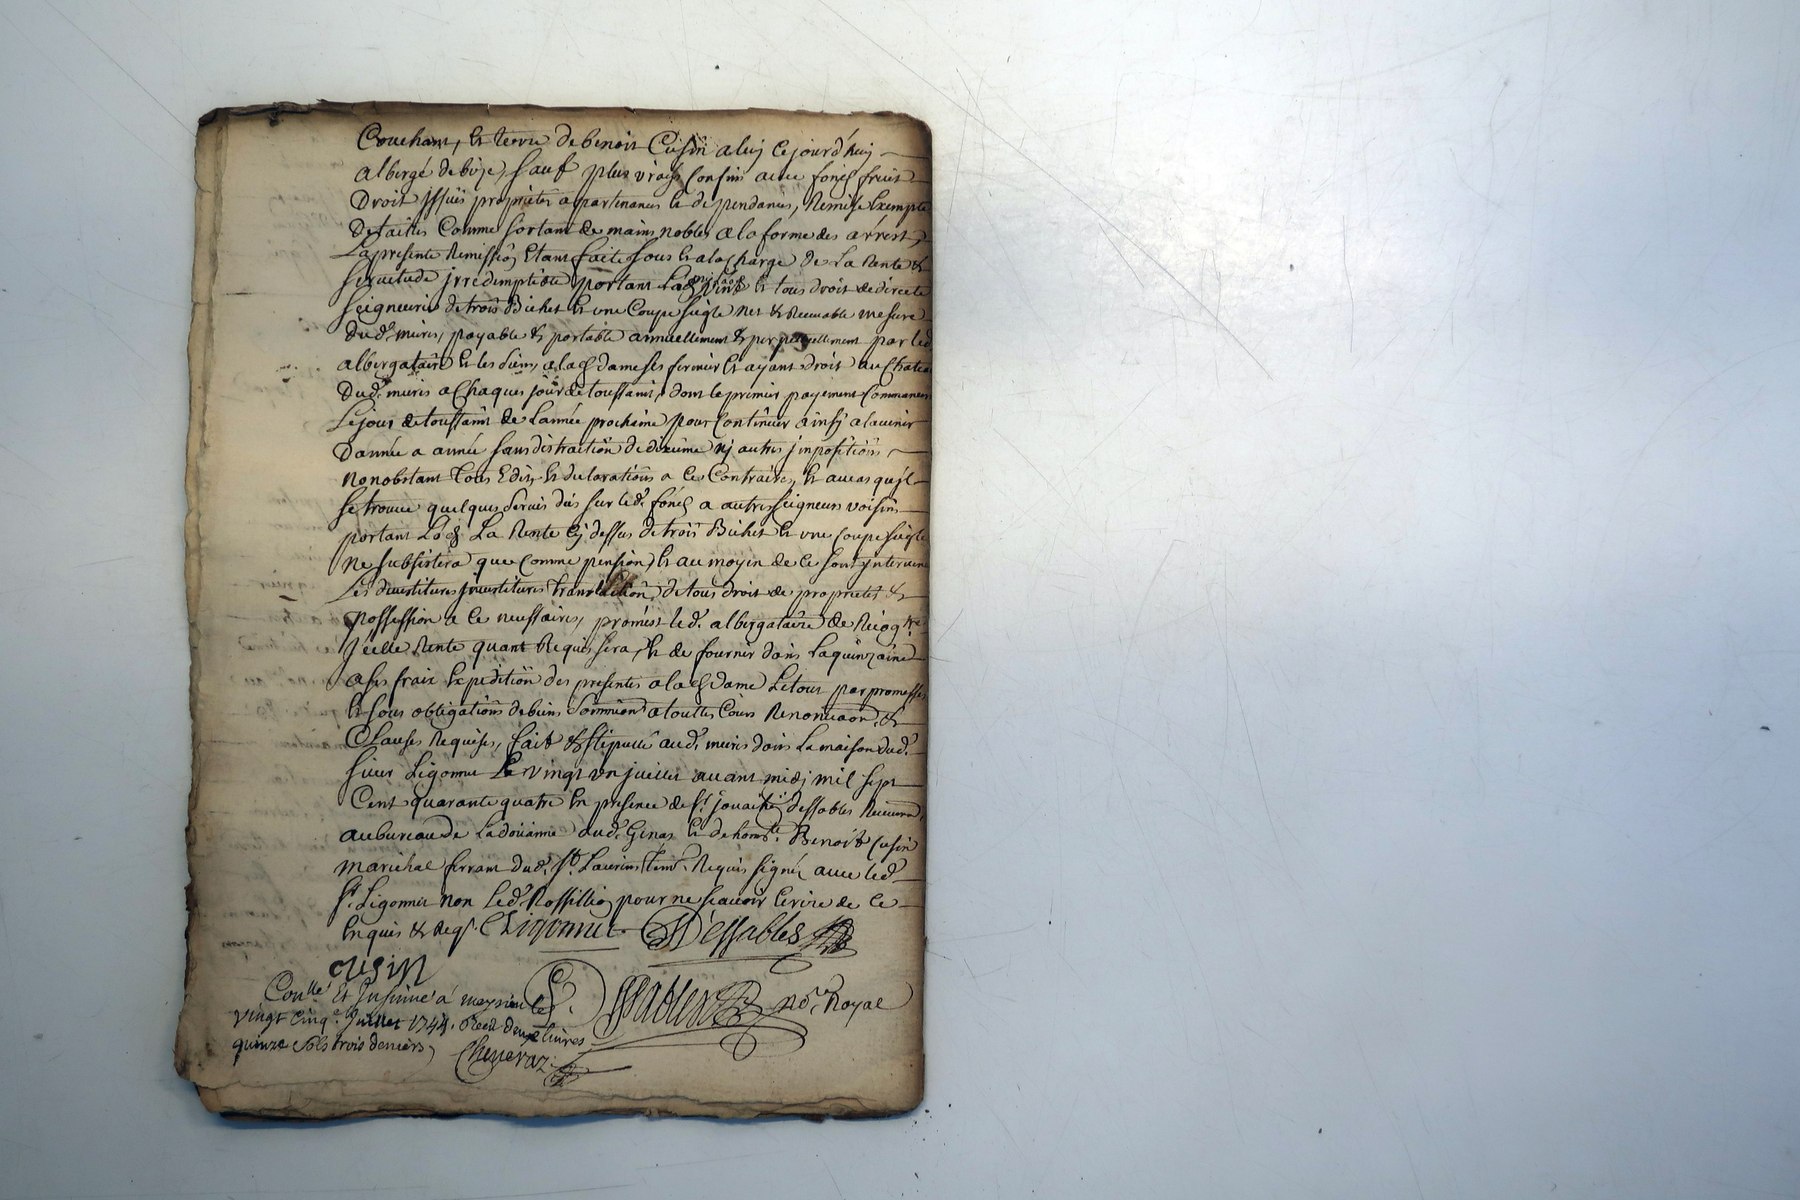 Couchant, et terre de benoit Cusin a luy ce jourd'huy
albergé de bize, sauf plus vrays Confins avec fond fruit
Droit jssuës proprietés apartenances et dependances, Remise Exempte
De tailles Comme sortant de mains nobles a la forme des arrest,
La presente Remission Etant faite sous et a la Charge de La Rente &
servitude jrredimptible portant et tous droit de directe
seigneurie de trois Bichet et une Coupe seigle net & Recevable mesure
Dud. muris, payable & portable annuellement & perpetuellement par led
albergataire et les siens, a lad dame ses fermier et ayant droit au Chateau
Dud. muris a Chaques jour de toussaint, dont le premier payement Commancera
Le jour de toussaint de L'année prochaine pour Continuer ainsy a lavenir
Dannée a année sans distraction de dixiéme nj autres jmpositions
nonobstant Tous Edits et declarations a Ce Contraires, et au cas qujl
se trouve quelques servis dûs sur led. fond a autres seigneurs voisins
portant Lod La Rente Cy dessus de trois Bichet et une Coupe seigle
ne subsistera que Comme pension, et au moyen de Ce sont jntervenu
Les devestitures jnvestitures translation de tous droit de proprietés &
Possession a Ce necessaires, promest led. albergataire de Recog.tre
Jcelle Rente quant Requis sera, et de fournir dans La quinzaine
a ses fraix Expedition des presentes a lad dame Le tout par promesses
Et sous obligations de biens soumission a touttes Cours Renonciaon &
Clauses Requises, fait & stipullé aud. muris dans La maison dud.
sieur Ligonnet Le vingt un juillet avant midj mil sept
Cent quarante quatre En presence de s.r dessables Receveur
au bureau de La doüanne dud. Genas et de hom.e Benoit Cusin
marechal ferrant dud. S.t Laurins, tem. Requis signéz avec led.
s.r Ligonnet non Led. Rossillion pour ne scavoir Ecrire de Ce
Enquis & Reqs. Ligonnet Dessables
cusin
Con.llé Et Insinué á meyzieu le Dessables no.re Royal
vingt Cinq.e Juillet 1744. Recû deux Livres
quinze sols trois deniers,
Cheneraz